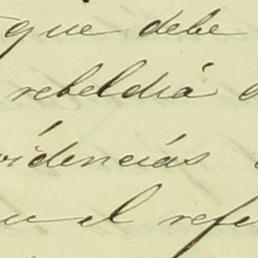 que debe
rebeldiá
videnciás
el refe